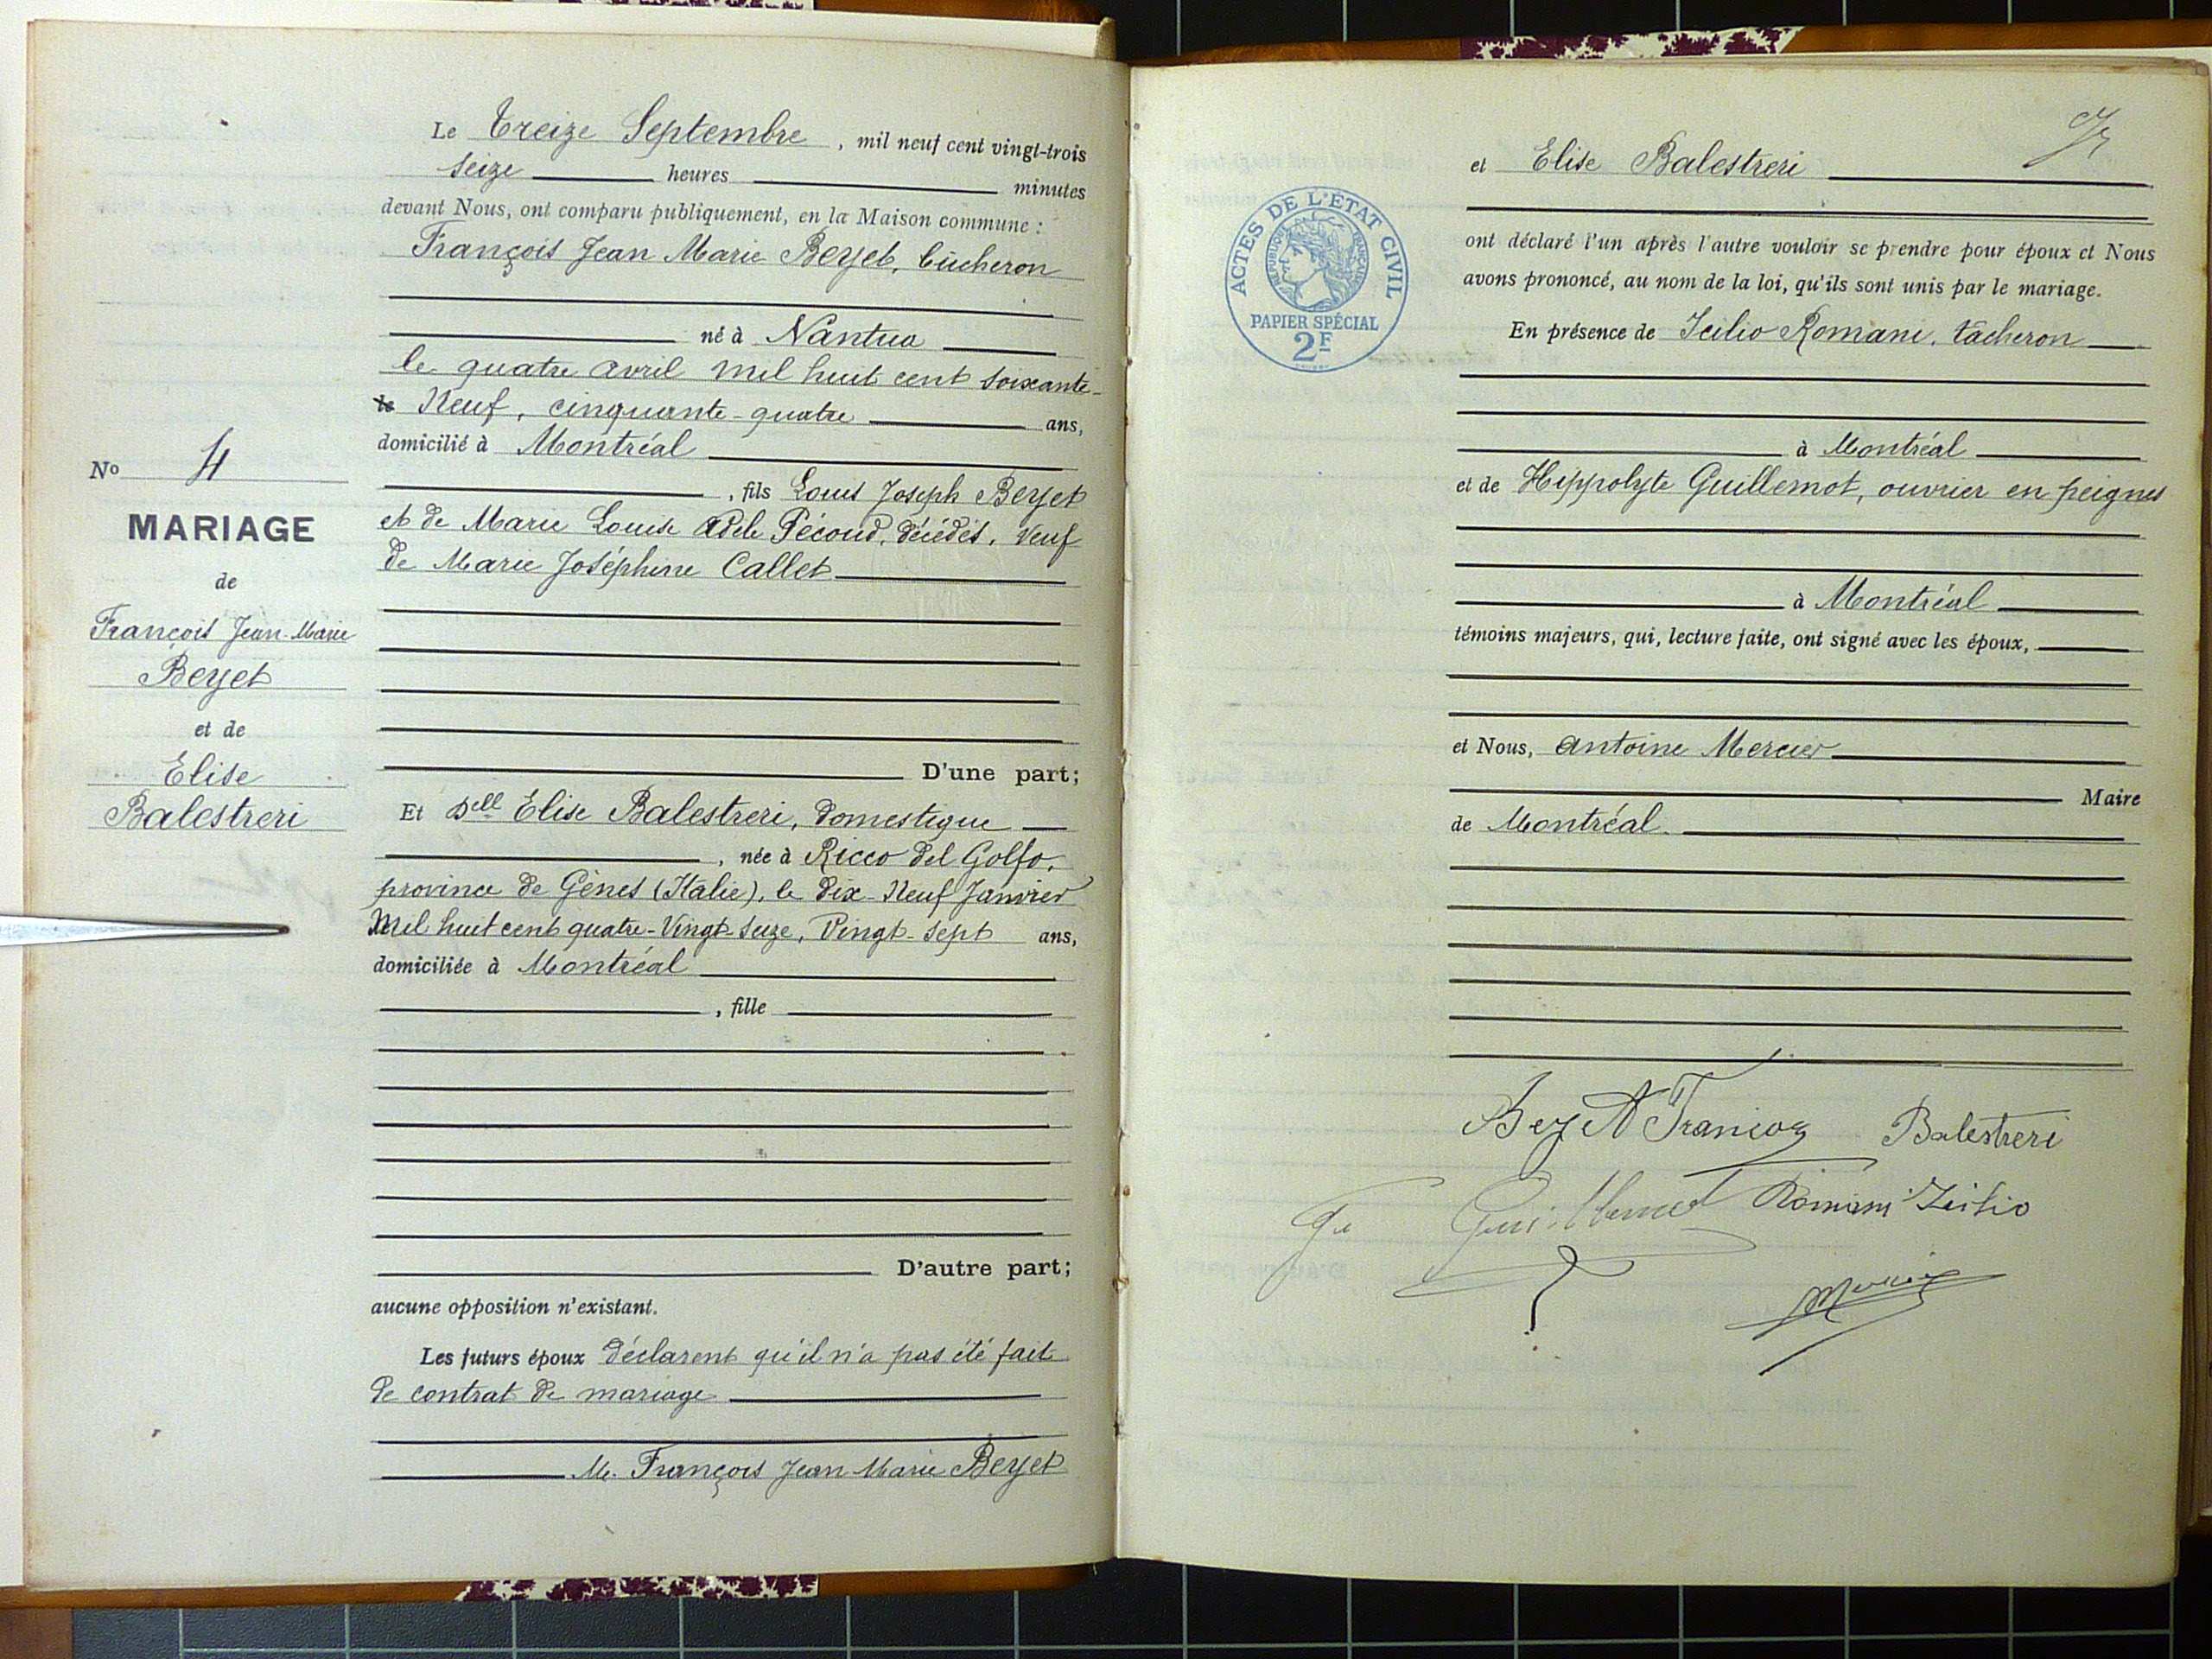 Le Treize Septembre, mil neuf cent vingt-trois
seize heures minutes
devant Nous, ont comparu publiquement, en la Maison commune :
François Jean Marie Beyet, bûcheron
né à Nantua
le quatre avril mil huit cent soixante-
Neuf, cinquante-quatre ans,
domicilié à Montréal
, fils Louis Joseph Beyet
et de Marie Louise Adele Pécoud, décédés, veuf
de Marie Joséphine Callet
D'une part;
No 4
MARIAGE
de
François Jean-Marie
Beyet
et de
Elise
Balestreri
Et Dell Elise Balestreri, domestique
, née à Ricco del Golfo,
province de Gênes (Italie), le dix-Neuf Janvier
Mil huit cent quatre-Vingt-seize, Vingt-sept ans,
domiciliée à Montréal
, fille
D'autre part;
aucune opposition n'existant.
Les futurs époux déclarent qu'il n'a pas été fait
de contrat de mariage
M. François Jean-Marie Beyet
et Elise Balestreri
ACTES DE L'ÉTAT CIVIL
RÉPUBLIQUE FRANÇAISE
PAPIER SPÉCIAL
2F
ont déclaré l'un après l'autre vouloir se prendre pour époux et Nous
avons prononcé, au nom de la loi, qu'ils sont unis par le mariage.
En présence de Icilio Romani, tâcheron
à Montréal
et de Hippolyte Guillemot, ouvrier en peignes
à Montréal
témoins majeurs, qui, lecture faite, ont signé avec les époux,
et Nous, Antoine Mercier
Maire
de Montréal
Balestreri
Romani Icilio